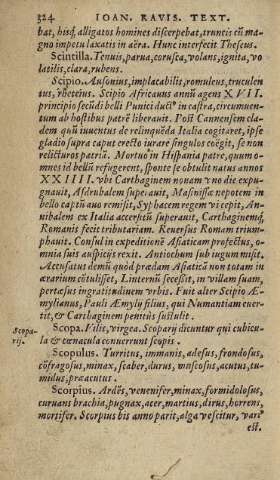 324 IOAN. RAVIS. TEXT.
bat, hisq́; alligatos homines discerpebat, truncis cũ mag
no impetu laxatis in aëra. Hunc interfecit Theseus.
Scintilla. Tenuis, parua, corusca, volans, ignita, vo
latilis, clara, rubens.
Scipio. Ausonius, implacabilis, romuleus, truculen
tus, rheteius. Scipio Africanus annũ agens XVII
principio secũdi belli Punici duct⁹ in castra, circumuen-
tum ab hostibus patrẽ liberauit. Post Cannensem cla-
dem quũ iuuentus de relinquẽda Italia cogitaret, ipse
gladio supra caput erecto iurare singulos coëgit, se non
relicturos patriã. Mortuo in Hispania patre, quum o-
mnes id bellũ refugerent, sponte se obtulit natus annos
XXIIII. vbi Carthaginem nouam vno die expu-
gnauit, Asdrubalem superauit, Masinissæ nepotem in
bello captũ auo remisit, Syphacem regem vi cepit, An-
nibalem ex Italia accersitũ superauit, Carthaginemq́;
Romanis fecit tributariam. Reuersus Romam trium-
phauit. Consul in expeditionẽ Asiaticam profectus, o-
mnia suis auspicijs rexit. Antiochum sub iugum misit.
Accusatus demũ quòd prædam Asiaticã non totam in
ærarium cõtulisset, Liternũ secessit, in villam suam,
pertæsus ingratitudinem vrbis. Fuit alter Scipio Æ-
mylianus, Pauli Æmylij filius, qui Numantiam euer-
tit, & Carthaginem penitùs sustulit.
Scopa-
rij.
Scopa. Vilis, virgea. Scoparij dicuntur qui cubicu-
la & cœnacula conuerrunt scopis.
Scopulus. Turritus, immanis, adesus, frondosus,
cõfragosus, minax, scaber, durus, muscosus, acutus, tu-
midus, præacutus.
Scorpius. Ardẽs, venenifer, minax, formidolosus,
curuans brachia, pugnax, acer, martius, dirus, horrens,
mortifer. Scorpius bis anno parit, alga vescitur, vari⁹
est.